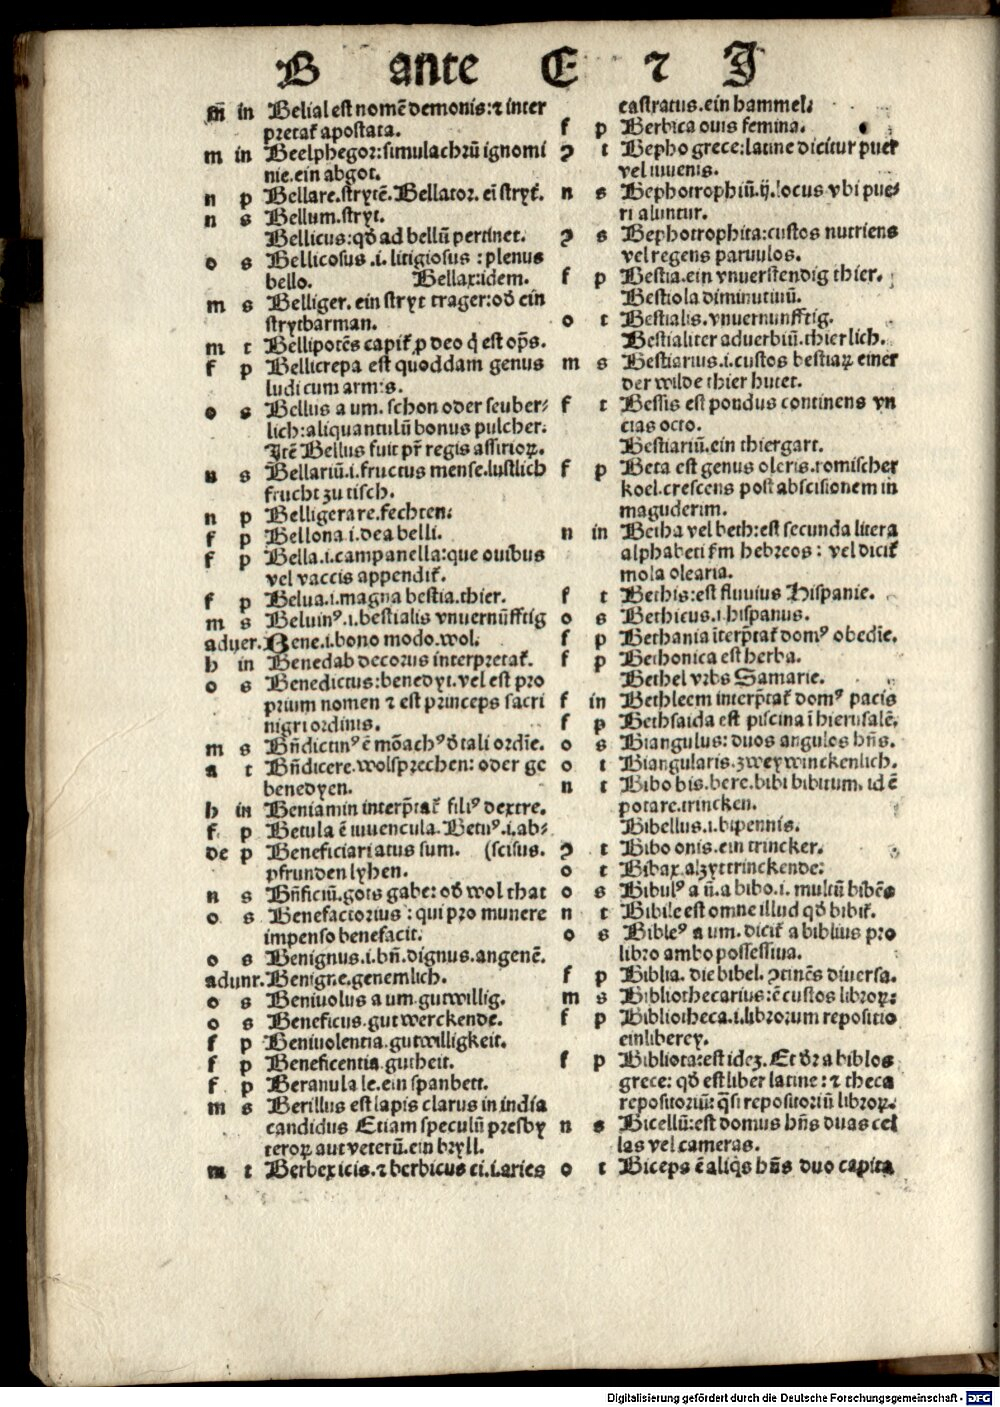 B ante E ⁊ J
m in Belial est nomē demonis: ⁊ inter
pretat᷑ apostata.
m in Beelphegor: simulachrū ignomi
nie. ein abgot.
n p Bellare. strytē. Bellator. eī stryt᷑.
n s Bellum. stryt.
Bellicus: qd̄ ad bellū pertinet.
o s Bellicosus .i. litigiosus : plenus
bello. Bellax: idem.
m s Belliger. ein stryt trager: od̄ ein
strytbarman.
m t Bellipotēs capit᷑ ꝓ deo q̄ est op̄s.
f p Bellicrepa est quoddam genus
ludi cum armis.
o s Bellus a um. schon oder seuber⸗
lich: aliquantulū bonus pulcher.
Itē Bellus fuit pr̄ regis assirioꝝ.
n s Bellariū .i. fructus mense. lustlich
frucht zu tisch.
n p Belligerare. fechten.
f p Bellona .i. dea belli.
f p Bella .i. campanella: que ouibus
vel vaccis appendit᷑.
f p Belua .i. magna bestia. thier.
m s Beluinꝰ .i. bestialis vnuernūfftig
aduer. Bene .i. bono modo. wol.
h in Benedab decorus interpretat᷑.
o s Benedictus: benedyt. vel est pro
prium nomen ⁊ est princeps sacri
nigri ordinis.
m s Bn̄dictinꝰ ē mōachꝰ d̄ tali ordīe.
a t Bn̄dicere. wolsprechen: oder ge
benedyen.
h in Beniamin interp̄tat᷑ filiꝰ dextre.
f p Betula ē iuuencula. Betuꝰ .i. ab⸗
de p Beneficiari atus sum. (scisus.
pfrunden lyhen.
n s Bn̄ficiū. gots gabe: od̄ wol that
o s Benefactorius : qui pro munere
impenso benefacit.
o s Benignus .i. bn̄. dignus. angenē.
adunr. Benigne. genemlich.
o s Beniuolus a um. gutwillig.
o s Beneficus. gut werckende.
f p Beniuolentia. gutwilligkeit.
f p Beneficentia. gutheit.
f p Beranula le. ein spanbett.
m s Berillus est lapis clarus in india
candidus Etiam speculū presby
teroꝝ aut veterū. ein bryll.
m t Berbex icis. ⁊ berbicus ci .i. aries
castratus. ein hammel.
f p Berbica ouis femina.
ꝯ t Bepho grece: latine dicitur puer
vel iuuenis.
n s Bephotrophiū. ij. locus vbi pue⸗
ri aluntur.
ꝯ s Bephotrophita: custos nutriens
vel regens paruulos.
f p Bestia. ein vnuerstendig thier.
Bestiola diminutiuū.
o t Bestialis. vnuernunfftig.
Bestialiter aduerbiū. thierlich.
m s Bestiarius .i. custos bestiaꝝ einer
der wilde thier hutet.
f t Bessis est pondus continens vn
cias octo.
Bestiariū. ein thiergart.
f p Beta est genus oleris. romischer
koel. crescens post abscisionem in
maguderim.
n in Betha vel beth: est secunda litera
alphabeti s̄m hebreos : vel dicit᷑
mola olearia.
f t Bethis: est fluuius Hispanie.
o s Bethicus .i. hispanus.
f p Bethania īterp̄tat᷑ domꝰ obedīe.
f p Bethonica est herba.
Bethel vrbs Samarie.
f in Bethleem interp̄tat᷑ domꝰ pacis
f p Bethsaida est piscina ī hierusalē.
o s Biangulus: duos angulos hn̄s.
o t Biangularis. zweywinckenlich.
n t Bibo bis. bere. bibi bibitum. id ē
potare. trincken.
Bibellus .i. bipennis.
ꝯ t Bibo onis. ein trincker.
o t Bibax. alzyt trinckende.
o s Bibulꝰ a ū. a bibo .i. multū bibēs
n t Bibile est omne illud qd̄ bibit᷑.
o s Bibleꝰ a um. dicit᷑ a biblius pro
libro ambo possessiua.
f p Biblia. die bibel. ꝯtinēs diuersa.
m s Bibliothecarius: ē custos libroꝝ.
f p Bibliotheca .i. librorum repositio
ein liberey.
f p Bibliota: est idez. Et dr̄ a biblos
grece: qd̄ est liber latine: ⁊ theca
repositoriū: q̄si repositoriū libroꝝ.
n s Bicellū: est domus hn̄s duas cel
las vel cameras.
o t Biceps ē aliq̄s hn̄s duo capita
Digitalisierung gefördert durch die Deutsche Forschungsgemeinschaft - DFG